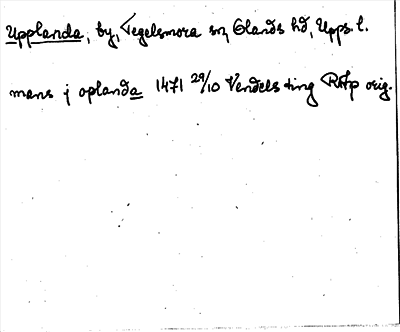 Upplanda, by, Tegelsmora sn, Olands hd, Upps. l.
mans j oplanda 1471 29/10 Vendels ting RAp orig.